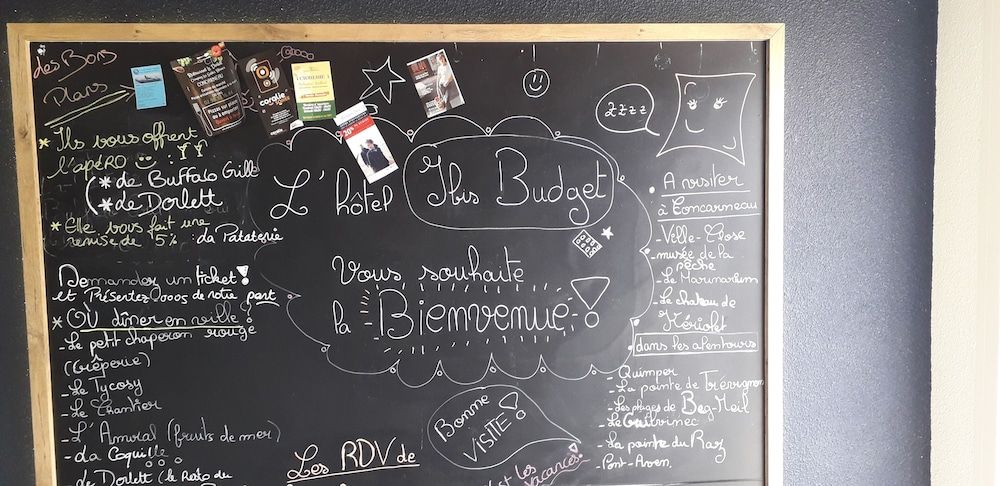 des Bons
Plans
* Ils vous offrent
l'apéro
(* de Buffalo Grill
(* de Dorlett
* Elle vous fait une
remise de 5% : la Pataterie
Demandez un ticket !
et Présentez vous de notre part
* OÙ dîner en ville ?
- Le petit chaperon rouge
(Crêperie)
- Le Tycosy
- Le Chantier
- L'Amiral (fruits de mer)
- La Coquille
de Dorlett (le Resto du
coralie
L'hôtel Ibis Budget
Vous souhaite
la Bienvenue !
Bonne
VISITE !
Les RDV de
les
vacances !
zzzz
A visiter
à Concarneau
- Ville-Close
- musée de la
pêche
- Le Marinarium
- Le chateau de
Kériolet
dans les alentours
- Quimper
- La pointe de Trévignon
- Les plages de Beg-Meil
- Le Guilvinec
- La pointe du Raz
- Pont-Aven